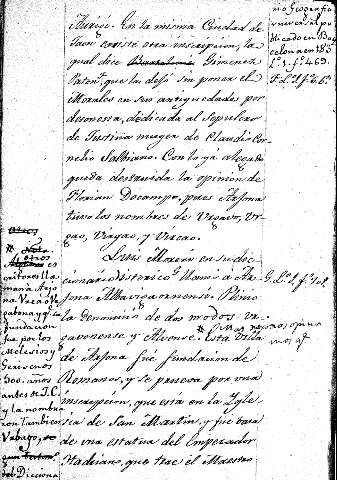 En la misma Ciudad de
Jaen existe otra inscripcion, la
qual dice Bartolomé Gimenez
Paton, que la dejó sin poner el
Morales en sus antiguedades por
desonesta, dedicada al sepulcro
de Justina muger de Claudio Cor-
nelio Salbiano. Con lo ya alegado
queda destruida la opinión de
Florian Docampo, pues Arjona
tuvo los nombres de Urgavo, Ur-
gao, Virgao, y Vircao.
Luis Moreri en su dic-
cionario Historico llamó a Ar-
jona Albavigaonense. Plinio
la denominó de dos modos Ur-
gavonense y Alvense. Esta Villa
de Arjona fué fundacion de
Romanos, y se prueva por una
inscripcion, que está en la Ygle-
sia de San Martin, y fue basa
de una estatua del Emperador
Hadriano, que trae el Maestro
Geografia
universal pu-
blicado en Bar-
celona en 183
otros
critores lla-
man à Arjo-
na
fundacion
fue por los
Melesios y
Griegos
500 años
antes de J.C.
y la nombra-
ron tambien
Urbago,
del Dicciona